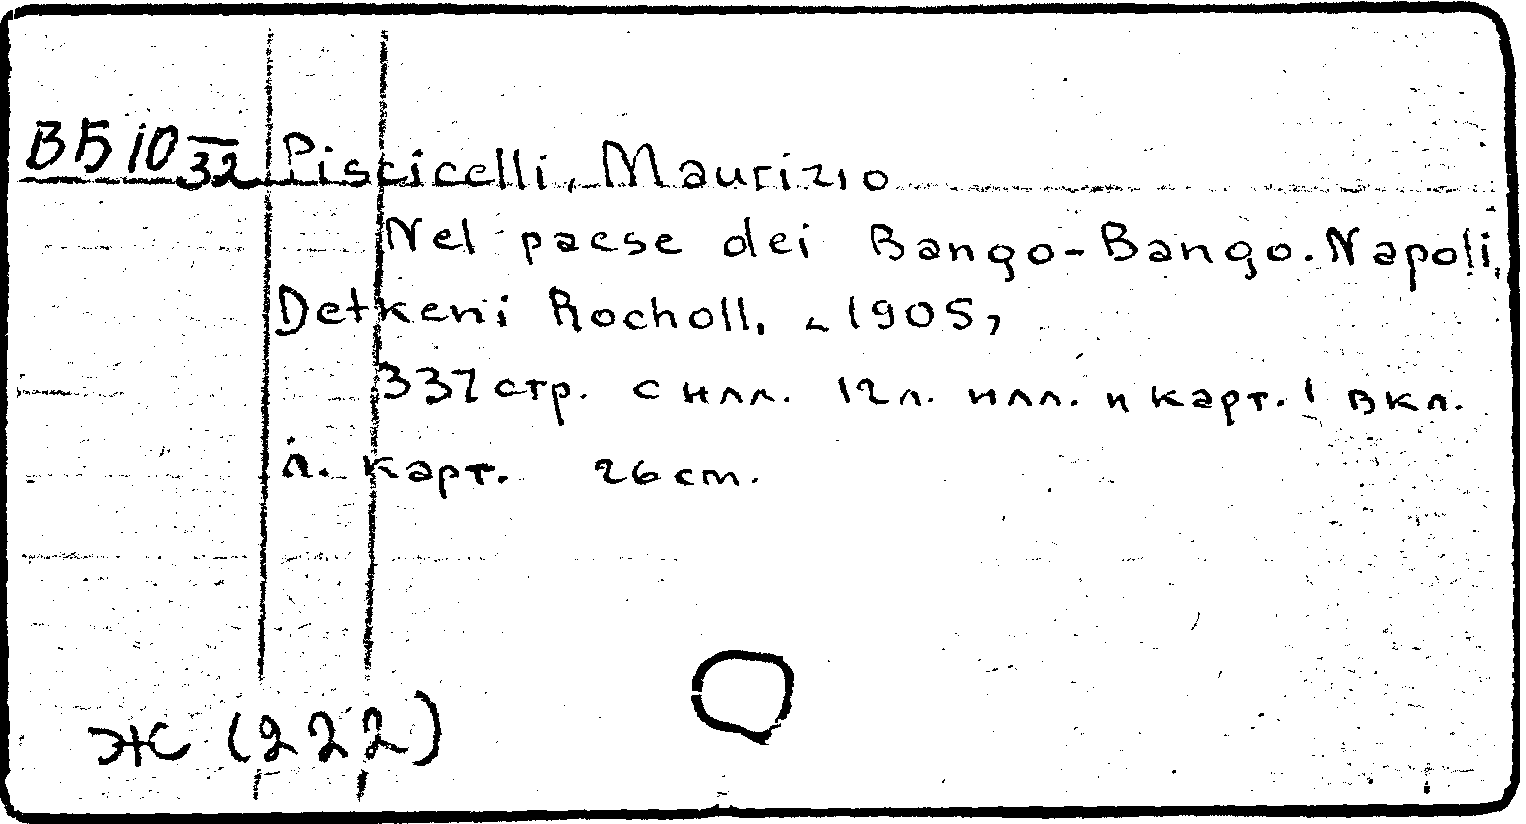 ВБ 10 32 Piscicelli, Maurizio
Nel paese dei Bango-Bango. Napoli,
Detkeni Rocholl, 1905,
337 стр. с илл. 12 л. илл. и карт. 1 вкл.
л. карт. 26 cm.
Ж (222)